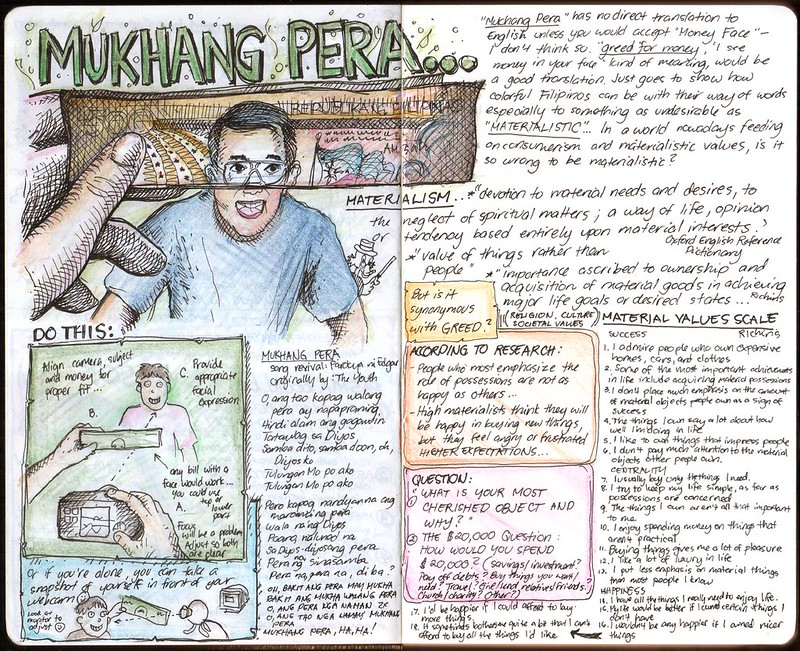 MUKHANG PERA...
REPUBLIKA NG PILIPINAS
"Mukhang Pera" has no direct translation to
English unless you would accept "Money Face" -
I don't think so. "greed for money", "I see
money in your face" kind of meaning, would be
a good translation. Just goes to show how
colorful Filipinos can be with their way of words
especially to something as undesirable as
"MATERIALISTIC"... In a world nowadays feeding
on consumerism and materialistic values, is it
so wrong to be materialistic?
MATERIALISM...*"devotion to material needs and desires, to
the neglect of spiritual matters; a way of life, opinion
or tendency based entirely upon material interests."
Oxford English Reference
Dictionary
*"value of things rather than
people"
*"importance ascribed to ownership and
acquisition of material goods in achieving
major life goals or desired states... Richins
DO THIS:
Align camera, subject
and money for
proper fit...
C. Provide
appropriate
facial
expression
B.
any bill with a
face would work...
you could use
top or
lower
part
A.
Focus
will be a problem
Adjust so both
are clear
Or if you're alone, you can take a
snapshot of yourself in front of your
webcam
Look at
monitor to
adjust
MUKHANG PERA
song revival: Parokya ni Edgar
originally by: The Youth
O, ang tao kapag walang
pera ay napapraning
Hindi alam ang gagawin
Tatawag sa Diyos
Samba dito, samba doon, oh,
Diyos ko
Tulungan Mo po ako
Tulungan Mo po ako
Pero kapag nandyan na ang
maraming pera
Wala na ng Diyos
Paang nalunod na
sa Diyos-diyosang pera
Perang sinasamba
Pera na, pera na, di ba?
OH, BAKIT ANG PERA MAY MUKHA
BAKIT ANG MUKHA WALANG PERA
O, ANG PERA NGA NAMAN 2X
O, ANG TAO NGA NAMAY MUKHANG
PERA
MUKHANG PERA, HA, HA!
But is it
synonymous
with GREED?
(RELIGION, CULTURE
SOCIETAL VALUES)
ACCORDING TO RESEARCH:
- People who most emphasize the
role of possessions are not as
happy as others...
- High materialists think they will
be happy in buying new things,
but they feel angry or frustrated
HIGHER EXPECTATIONS...
QUESTION:
① "WHAT IS YOUR MOST
CHERISHED OBJECT AND
WHY?"
② THE $20,000 QUESTION:
HOW WOULD YOU SPEND
$20,000? (savings/investment?
Pay off debts? Buy things you want/
need? Travel? Give/lend relatives/friends?
Church/charity? Other?)
MATERIAL VALUES SCALE
Richins
SUCCESS
1. I admire people who own expensive
homes, cars, and clothes
2. Some of the most important achievements
in life include acquiring material possessions
3. I don't place much emphasis on the amount
of material objects people own as a sign of
success
4. The things I own say a lot about how
well I'm doing in life
5. I like to own things that impress people
6. I don't pay much attention to the material
objects other people own.
CENTRALITY
7. I usually buy only the things I need.
8. I try to keep my life simple, as far as
possessions are concerned
9. The things I own aren't all that important
to me
10. I enjoy spending money on things that
aren't practical
11. Buying things gives me a lot of pleasure
12. I like a lot of luxury in life
13. I put less emphasis on material things
than most people I know
HAPPINESS
14. I have all the things I really need to enjoy life.
15. My life would be better if I owned certain things I
don't have
16. I wouldn't be any happier if I owned nicer
things
17. I'd be happier if I could afford to buy
more things.
18. It sometimes bothers me quite a bit that I can't
afford to buy all the things I'd like